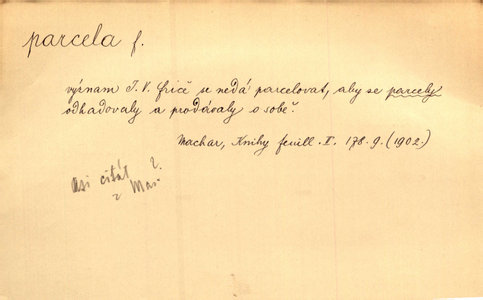 parcela f.
význam J. V. Friče se nedá parcelovat, aby se parcely
odhadovaly a prodávaly o sobě.
Machar, Knihy feuill. I. 178.9. (1902.)
Asi citát ?
z Mas